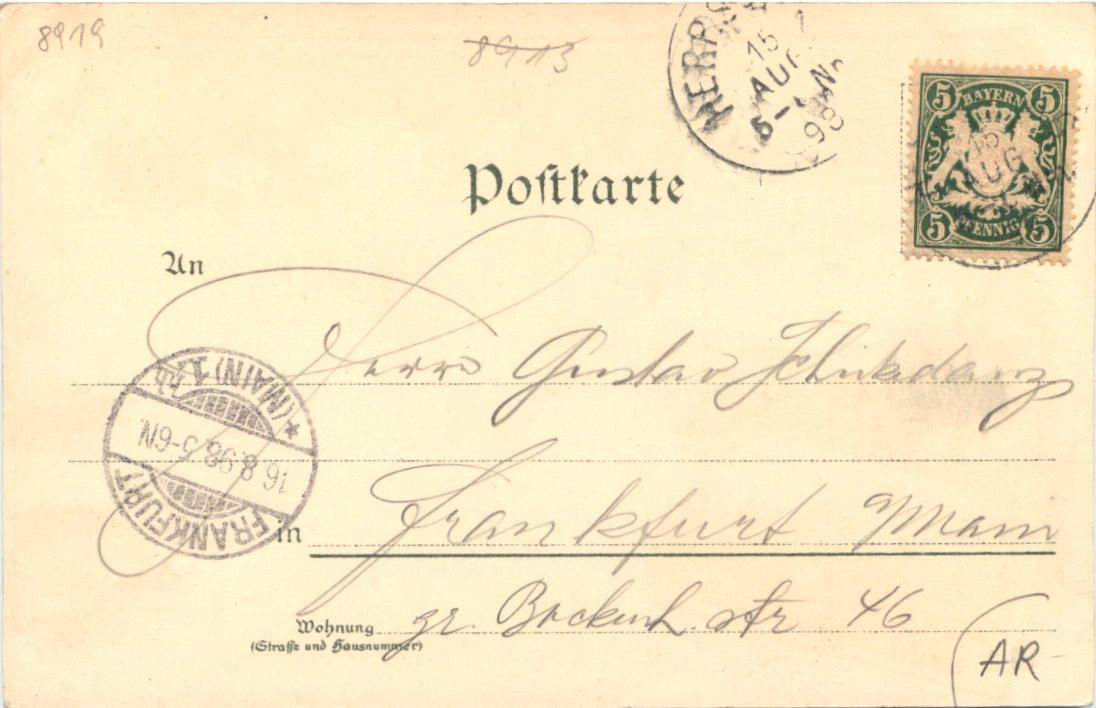 8919
8913
15
AUG
98
5 BAYERN 5
15
AUG
5 PFENNIG 5
Postkarte
An
Herrn Gustav Schikdanz
FRANKFURT
* (MAIN) 1
16.8.98.5-6N.
in Frankfurt a/Main
Wohnung gr. Bockenh. str 46
(Straße und Hausnummer)
AR